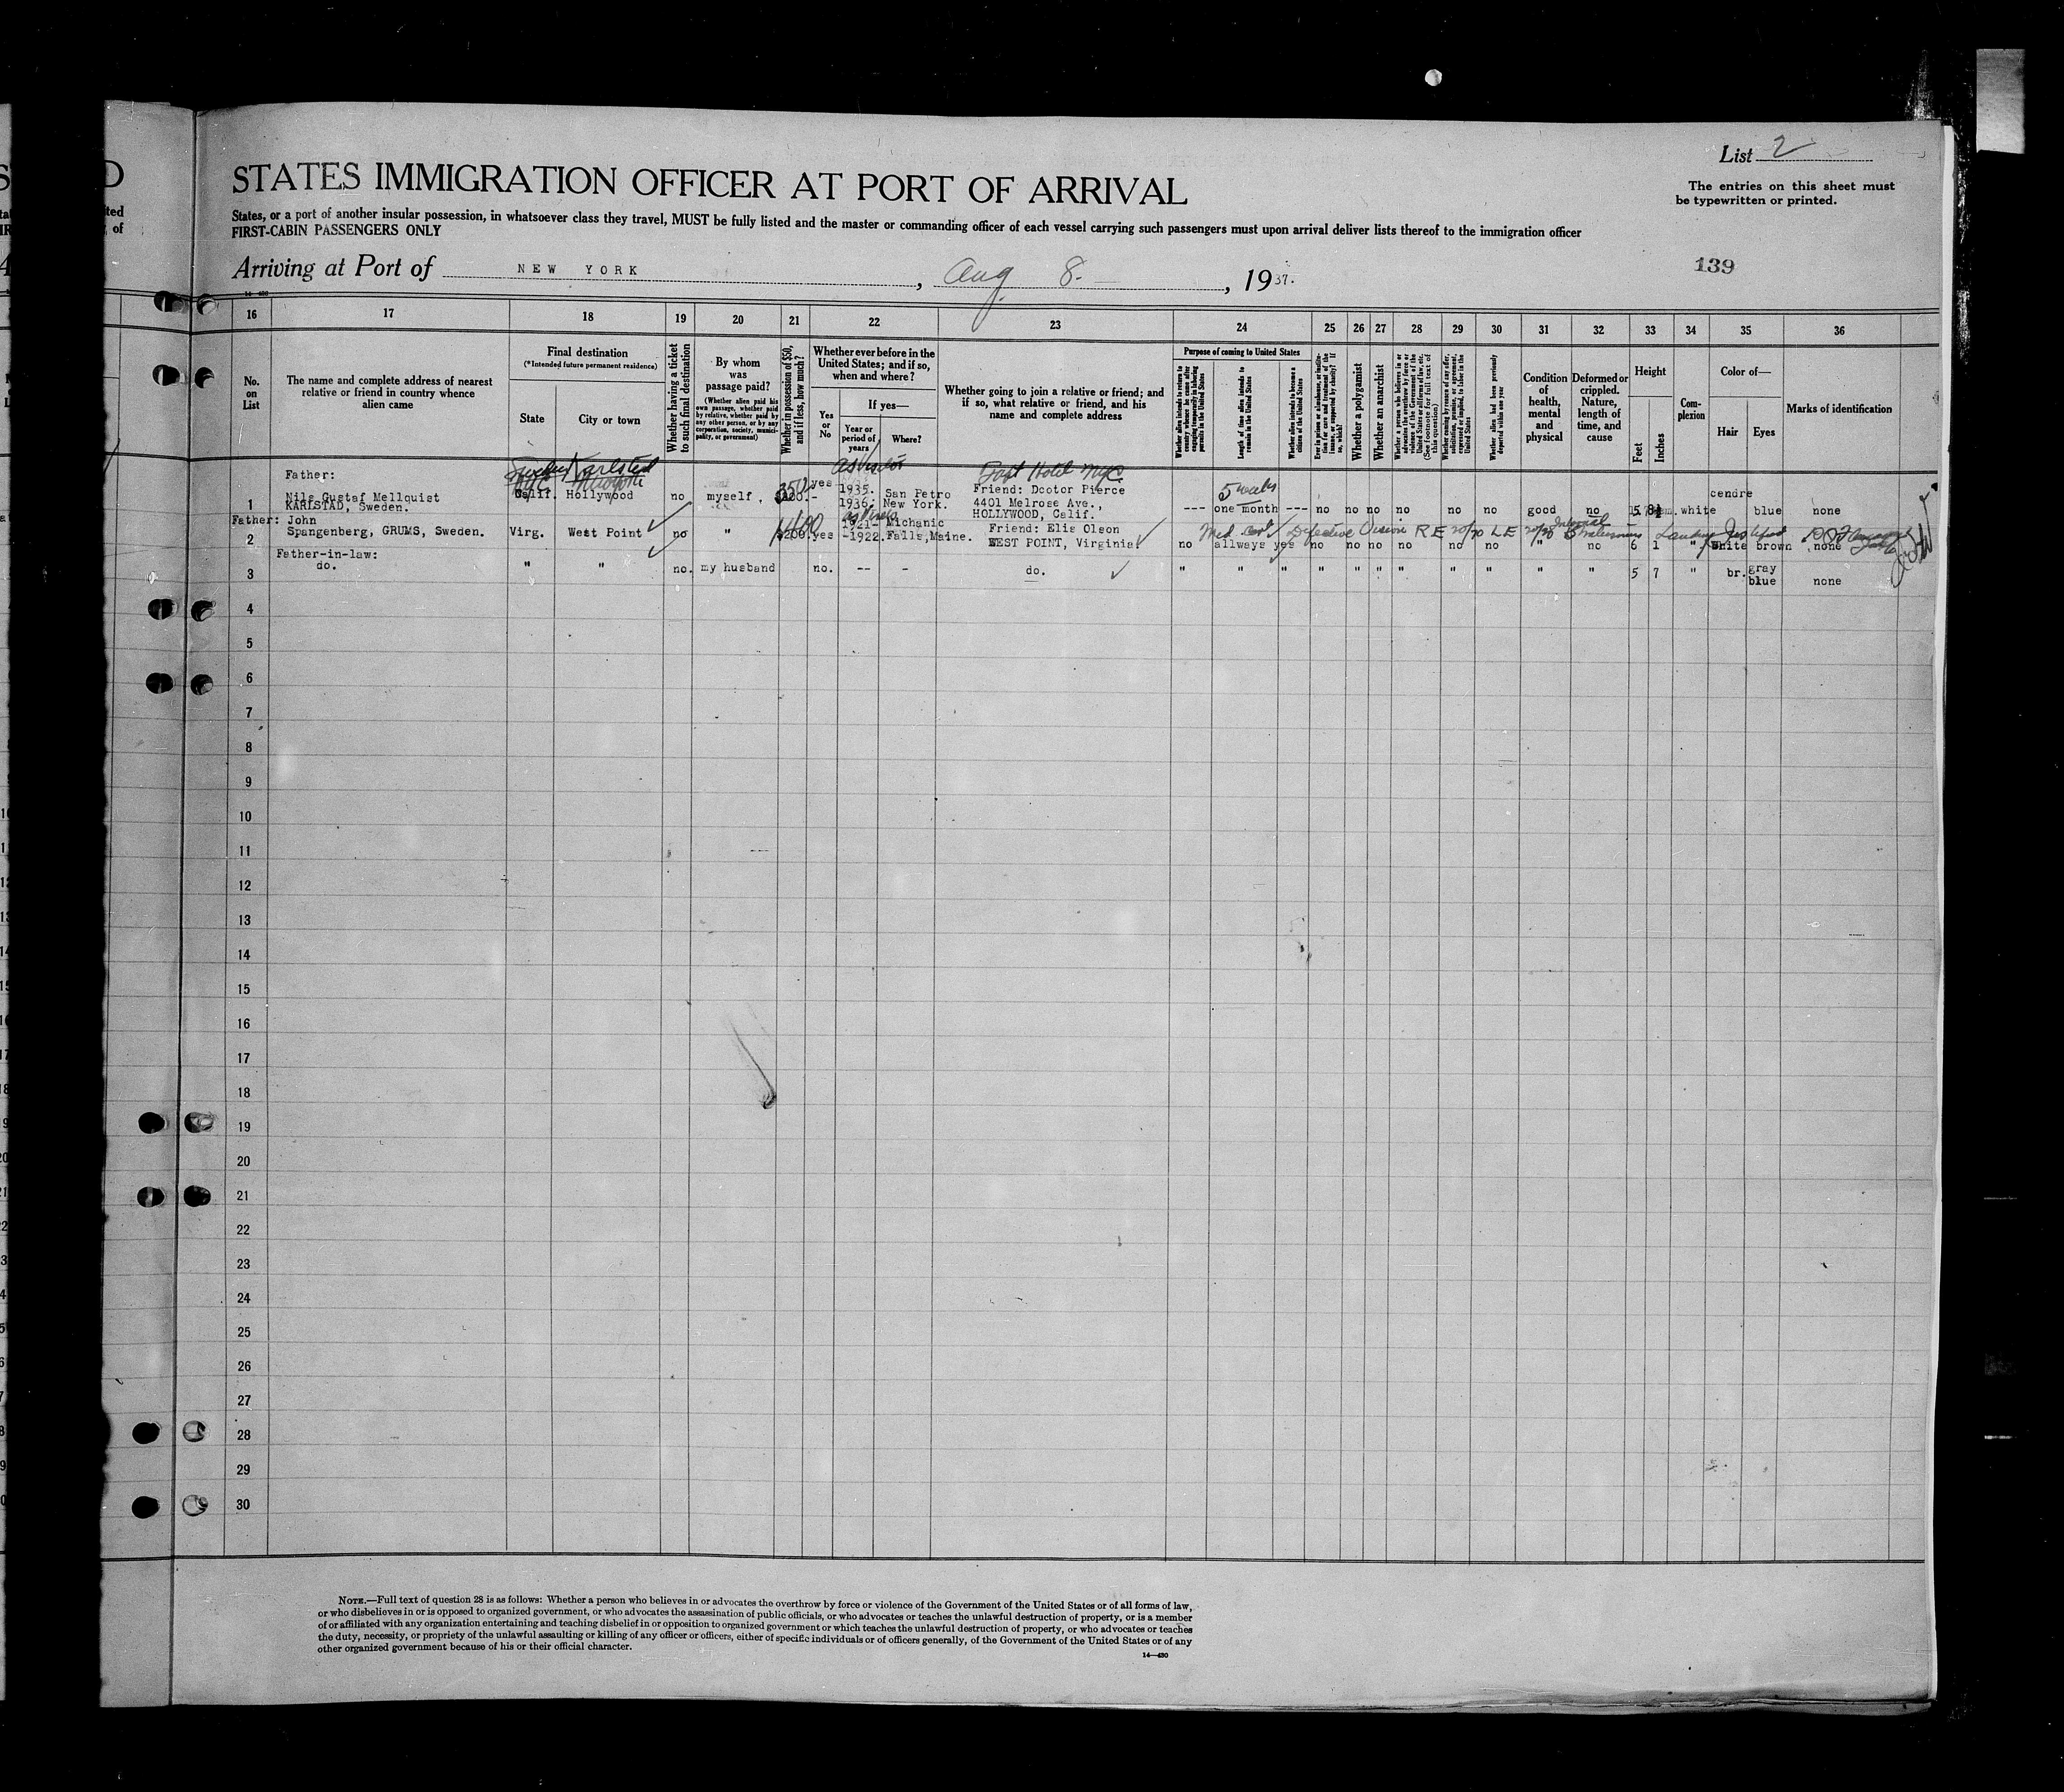 List 2
STATES IMMIGRATION OFFICER AT PORT OF ARRIVAL
The entries on this sheet must
be typewritten or printed.
States, or a port of another insular possession, in whatsoever class they travel, MUST be fully listed and the master or commanding officer of each vessel carrying such passengers must upon arrival deliver lists thereof to the immigration officer
FIRST-CABIN PASSENGERS ONLY
Arriving at Port of NEW YORK, Aug 8. , 1937.
139
14-430
16 17 18 19 20 21 22 23 24 25 26 27 28 29 30 31 32 33 34 35 36
No. on List
The name and complete address of nearest
relative or friend in country whence
alien came
Final destination
(*Intended future permanent residence)
State
City or town
Whether having a ticket
to such final destination
By whom
was
passage paid?
(Whether alien paid his
own passage, whether paid
by relative, whether paid by
any other person, or by any
corporation, society, munici-
pality, or government)
Whether in possession of $50,
and if less, how much?
Whether ever before in the
United States; and if so,
when and where?
Yes or No
If yes—
Year or
period of
years
Where?
Whether going to join a relative or friend; and
if so, what relative or friend, and his
name and complete address
Purpose of coming to United States
Whether alien intends to return to
country whence he came after
engaging temporarily in laboring
pursuits in the United States
Length of time alien intends to
remain in the United States
Whether alien intends to become a
citizen of the United States
Ever in prison or almshouse, or institu-
tion for care and treatment of the
insane, or supported by charity? If
so, which?
Whether a polygamist
Whether an anarchist
Whether a person who believes in or
advocates the overthrow by force or
violence of the Government of the
United States or all forms of law, etc.
(See footnote for full text of
this question)
Whether coming by reason of any offer,
solicitation, promise, or agreement,
expressed or implied, to labor in the
United States
Whether alien had been previously
deported within one year
Condition
of
health,
mental
and
physical
Deformed or
crippled.
Nature,
length of
time, and
cause
Height
Feet
Inches
Com-
plexion
Color of—
Hair
Eyes
Marks of identification
Sweden Karlstad
as visitor
Taft Hotel NYC
5 weeks
350
1 Father:
Nils Gustaf Mellquist
KARLSTAD, Sweden.
Calif. Hollywood no myself, yes 1935. San Petro
1936. New York.
Friend: Dcotor Pierce
4401 Melrose Ave.,
HOLLYWOOD, Calif.
--- one month --- no no no no no no good no 5 8½ white cendre blue none
2 Father: John
Spangenberg, GRUMS, Sweden.
Virg. West Point no " $200. yes 1921- Michanic
-1922. Falls,Maine.
Friend: Elis Olson
WEST POINT, Virginia.
Med. cert Defective Vision R E 20/70 L E Landing Justified
no allways yes no no no no no no " no 6 1 " white brown none
3 Father-in-law:
do. " " no. my husband no. -- - do. " " " " " " " " " " " 5 7 " br. gray
blue none
4
5
6
7
8
9
10
11
12
13
14
15
16
17
18
19
20
21
22
23
24
25
26
27
28
29
30
NOTE.—Full text of question 28 is as follows: Whether a person who believes in or advocates the overthrow by force or violence of the Government of the United States or of all forms of law,
or who disbelieves in or is opposed to organized government, or who advocates the assassination of public officials, or who advocates or teaches the unlawful destruction of property, or is a member
of or affiliated with any organization entertaining and teaching disbelief in or opposition to organized government or which teaches the unlawful destruction of property, or who advocates or teaches
the duty, necessity, or propriety of the unlawful assaulting or killing of any officer or officers, either of specific individuals or of officers generally, of the Government of the United States or of any
other organized government because of his or their official character.
14—430